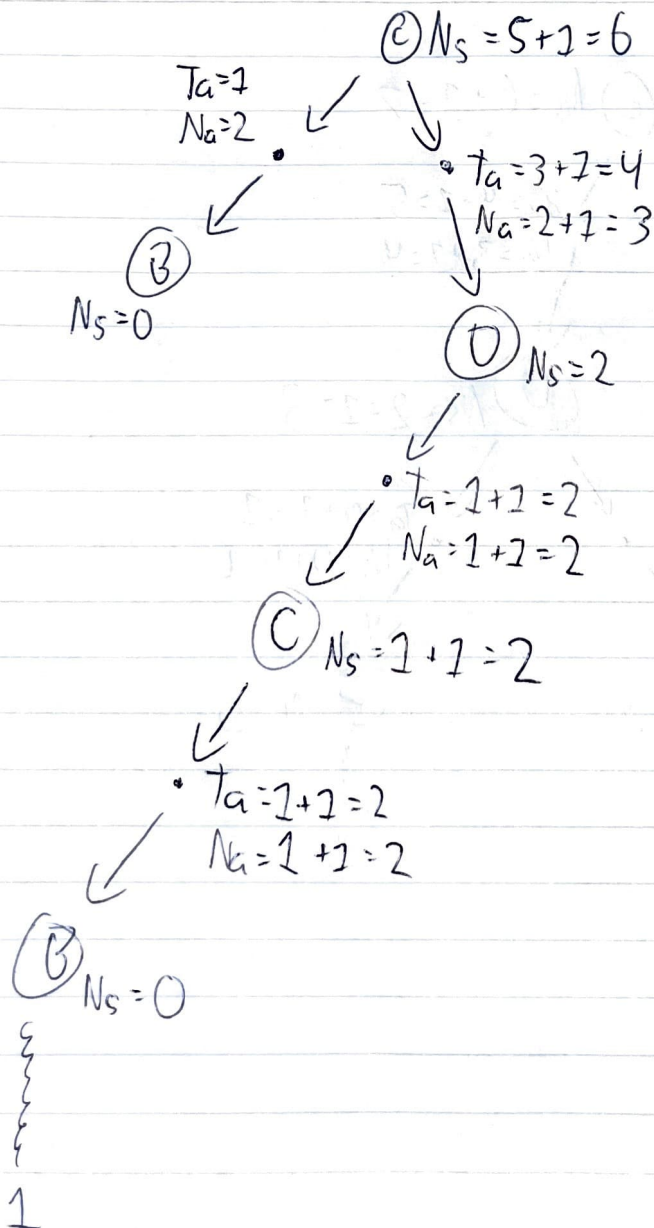 C Ns = 5+1=6
Ta=1
Na=2
Ta=3+1=4
Na=2+1=3
B
Ns=0
D
Ns=2
Ta=1+1=2
Na=1+1=2
C
Ns=1+1=2
Ta=1+1=2
Na=1+1=2
B
Ns=0
1